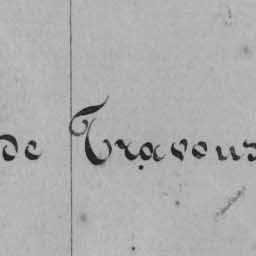 de Travous